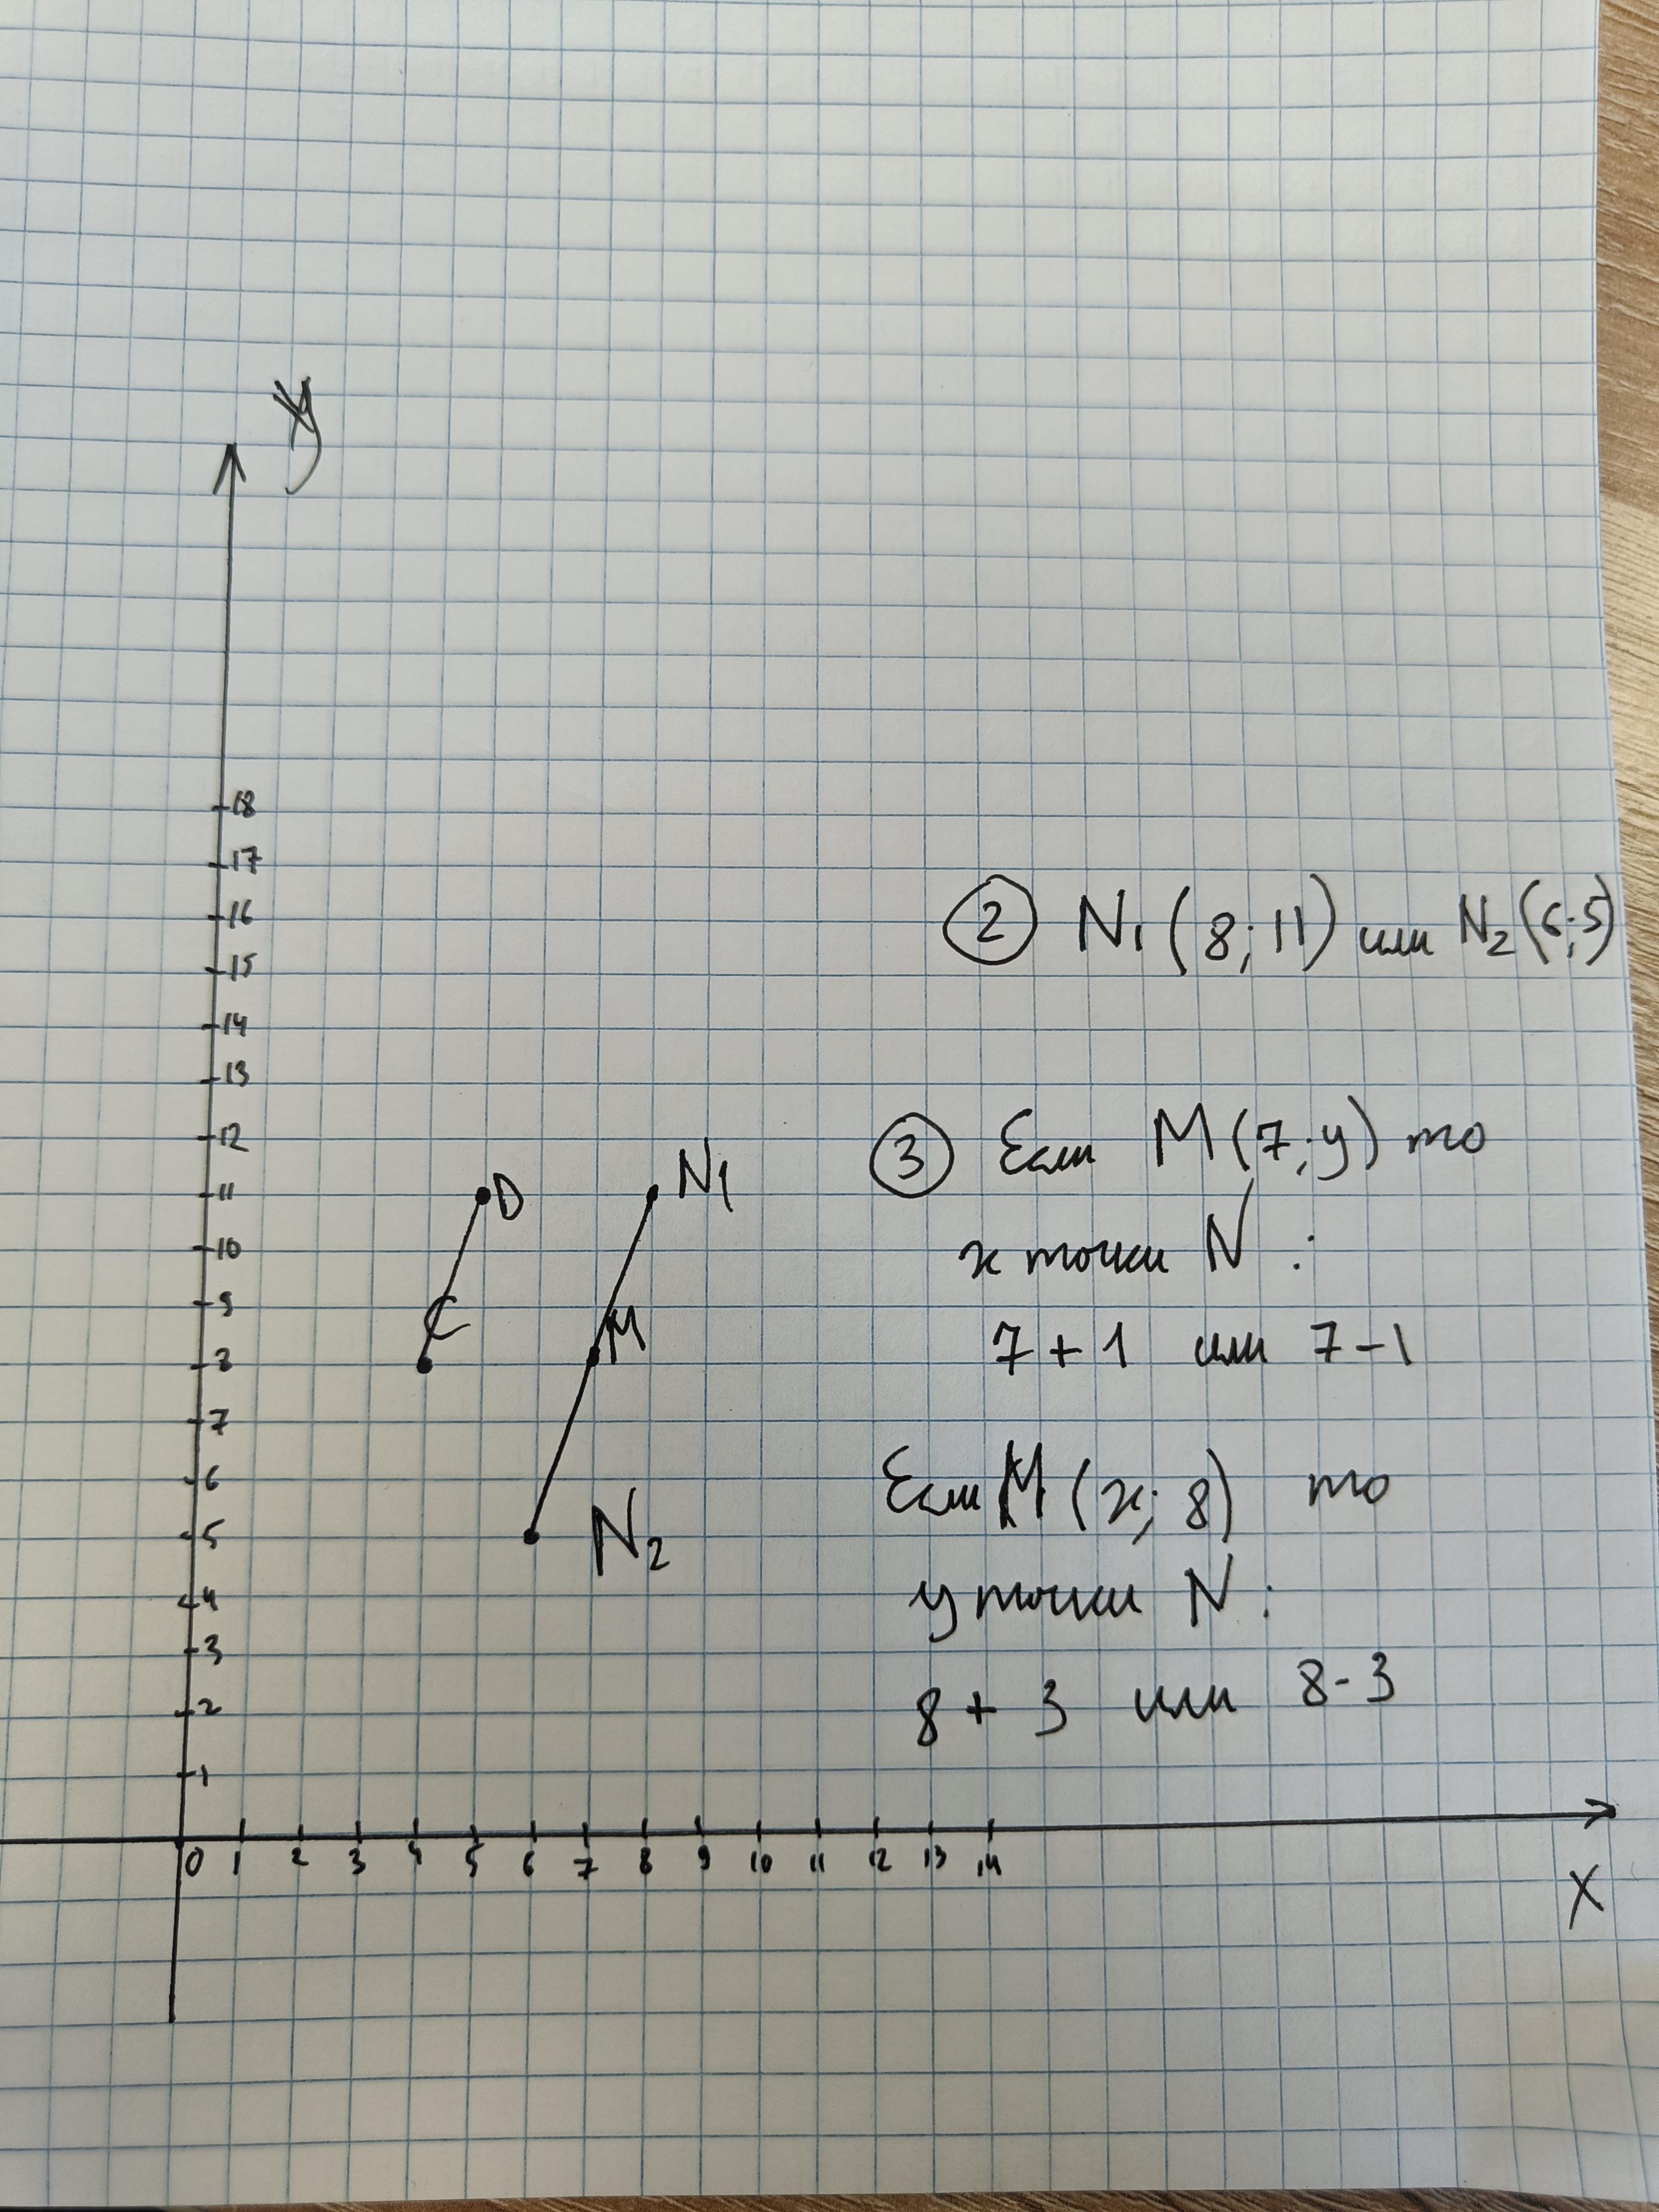 y
18
17
16
15
14
13
12
11
10
9
8
7
6
5
4
3
2
1
0 1 2 3 4 5 6 7 8 9 10 11 12 13 14
X
D
C
N1
M
N2
② N1 (8; 11) или N2 (6; 5)
③ Если M (7; y) то
x точки N :
7 + 1 или 7 - 1
Если M (x; 8) то
y точки N :
8 + 3 или 8 - 3